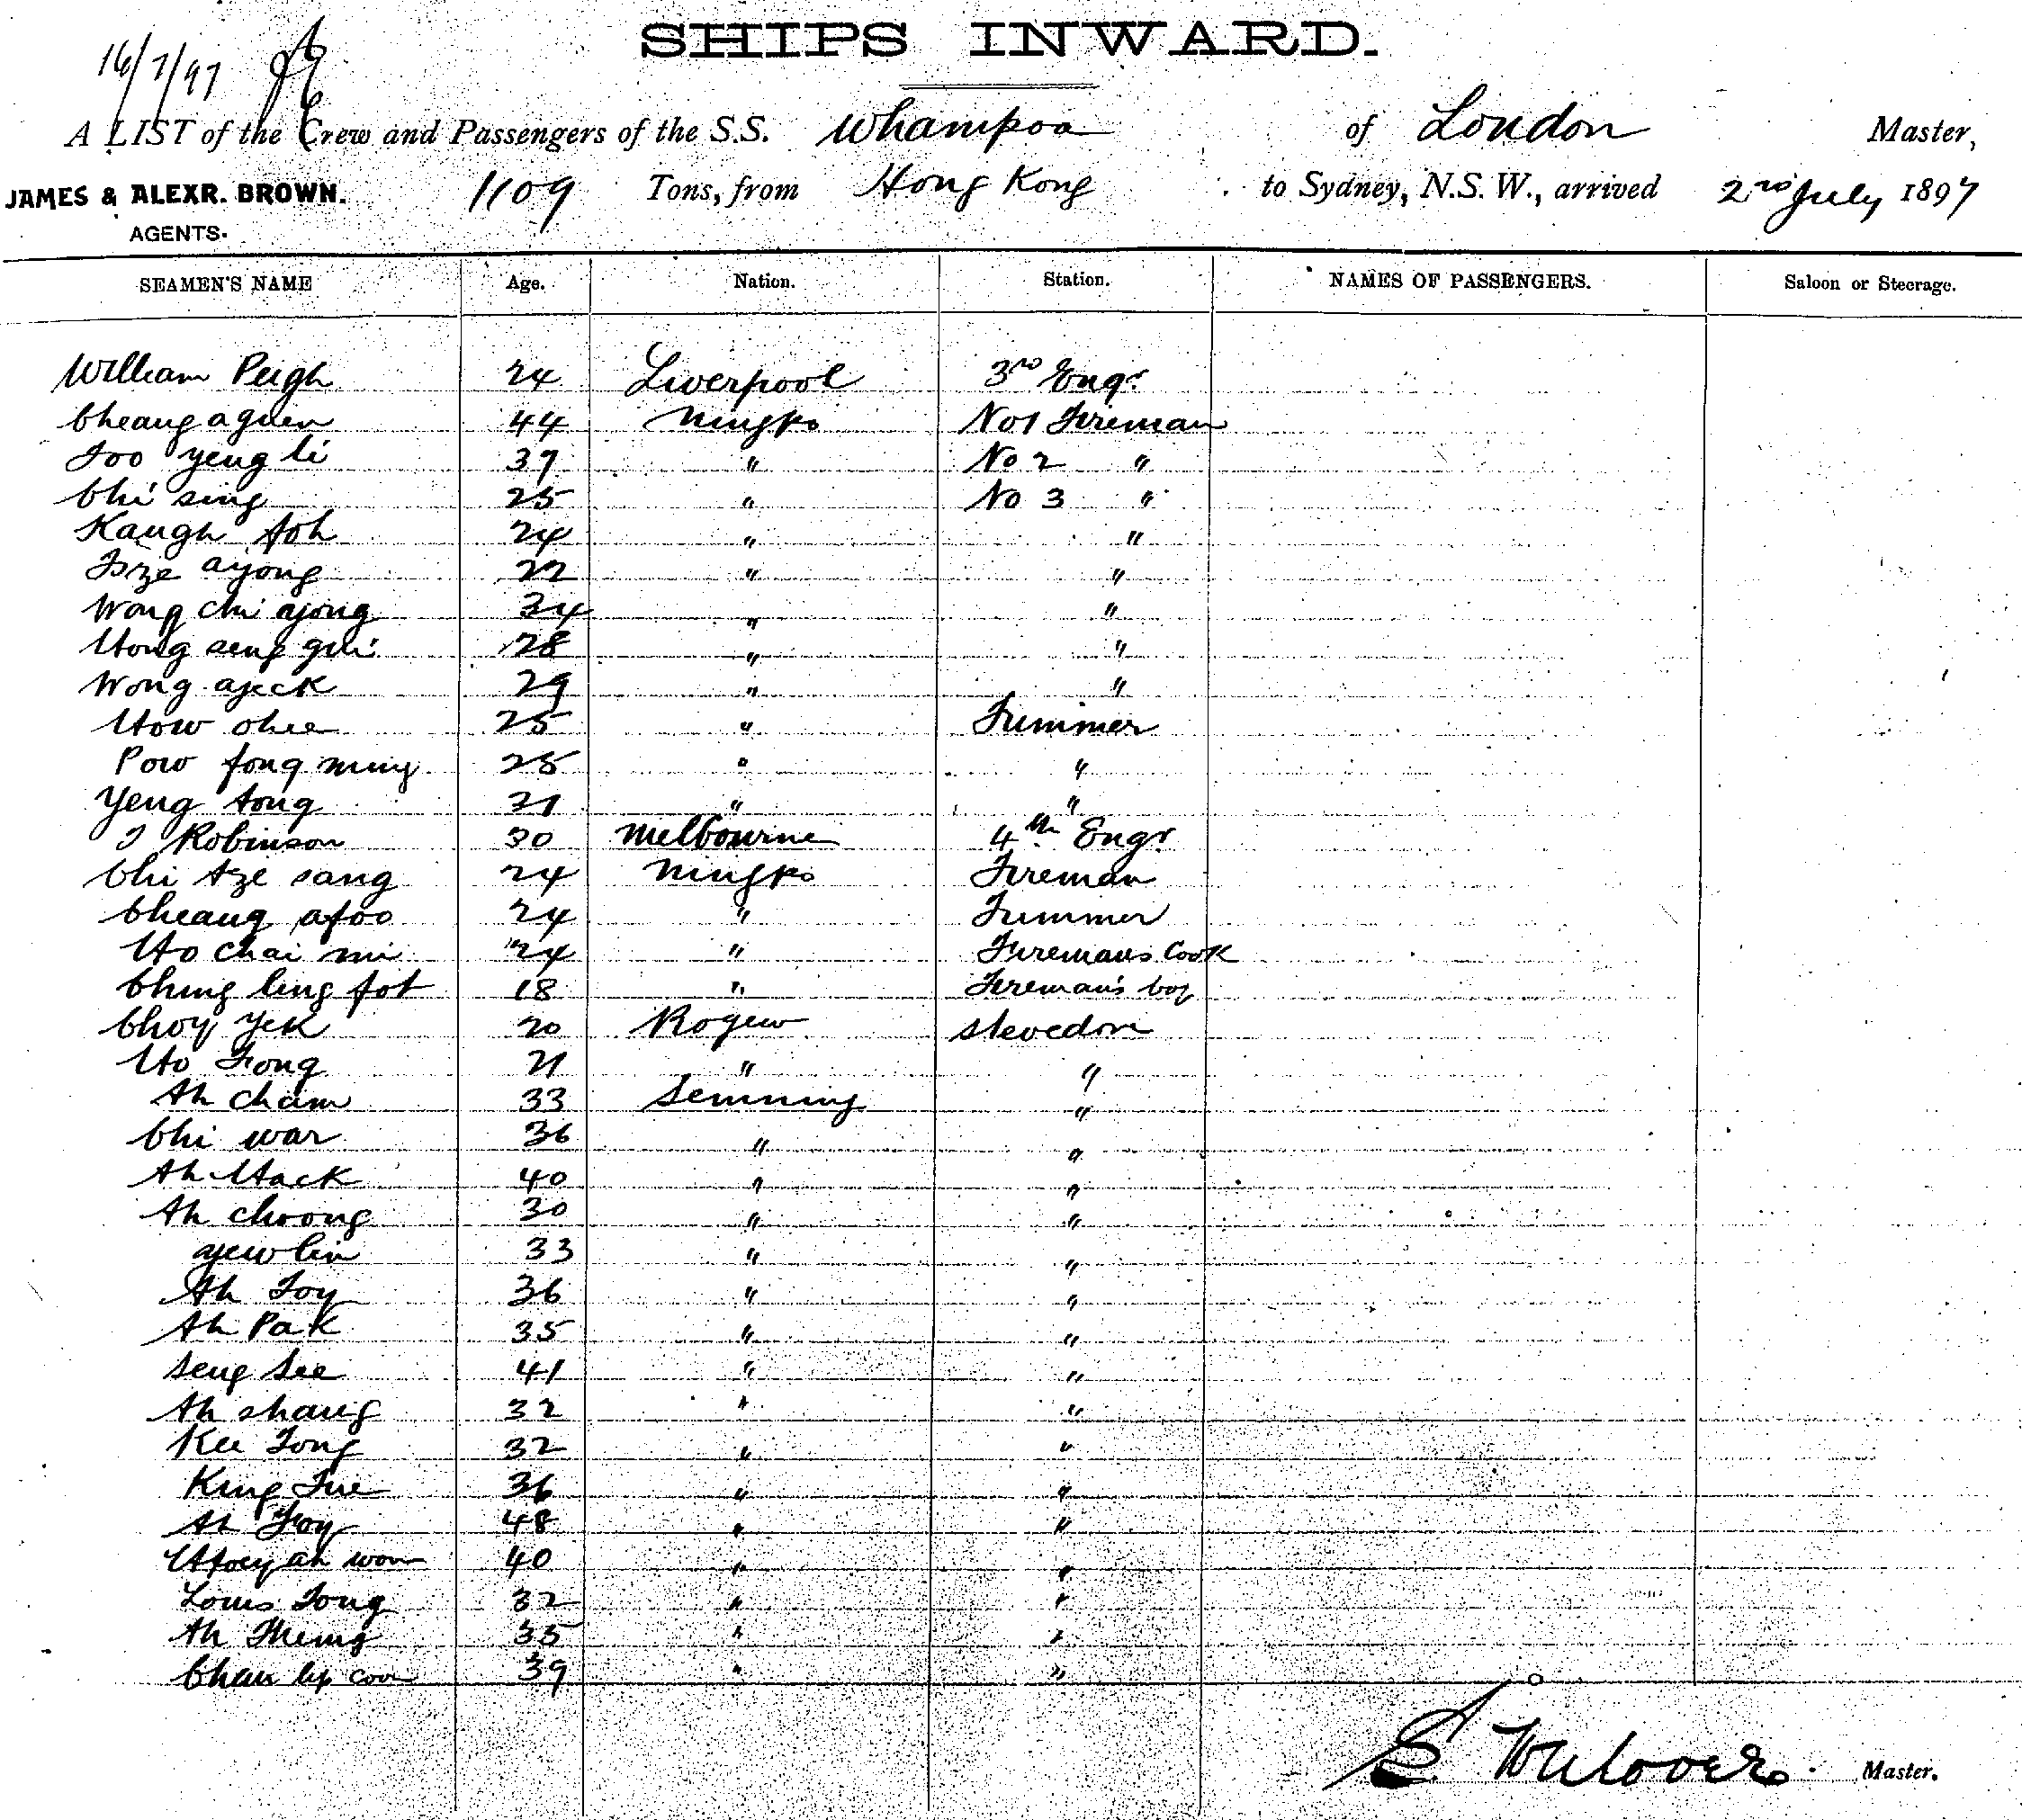 SHIPS INWARD.
16/7/97
A LIST of the Crew and Passengers of the S.S. Whampoa of London Master,
JAMES & ALEXR. BROWN. 1109 Tons, from Hong Kong to Sydney, N.S.W., arrived 2nd July 1897
AGENTS.
SEAMEN'S NAME Age. Nation. Station. NAMES OF PASSENGERS. Saloon or Steerage.
William Pugh 24 Liverpool 3rd Engr
Cheang aguen 44 Ningpo No 1 Fireman
Foo yeng li 37 " No 2 "
Chi sing 25 " No 3 "
Kaugh foh 24 " "
Tsze ayong 22 " "
Wong chi ayong 34 " "
Hong seng 28 " "
Wong ajeck 29 " "
How chee 25 " Trimmer
Pow fong ming 25 " "
Yeng tong 31 " "
J Robinson 30 Melbourne 4th Engr
Chi tze sang 24 Ningpo Fireman
Cheang afoo 24 " Trimmer
Ho chai mi 24 " Firemans Cook
Ching ling fot 18 " Fireman's boy
Choy Yek 20 stevedore
Ho Fong 21 " "
Ah cham 33 Senining "
Chi war 36 " "
Ah Hack 40 " "
Ah choong 30 " "
ayew lin 33 " "
Ah Foy 36 " "
Ah Pak 35 " "
Seng See 41 " "
Ah shang 32 " "
Kee Tong 32 " "
King Fue 36 " "
Ah Foy 48 " "
Hoey ah won 40 " "
Louis Tong 32 " "
Ah 35 " "
Chan lip coon 39 " "
Master.